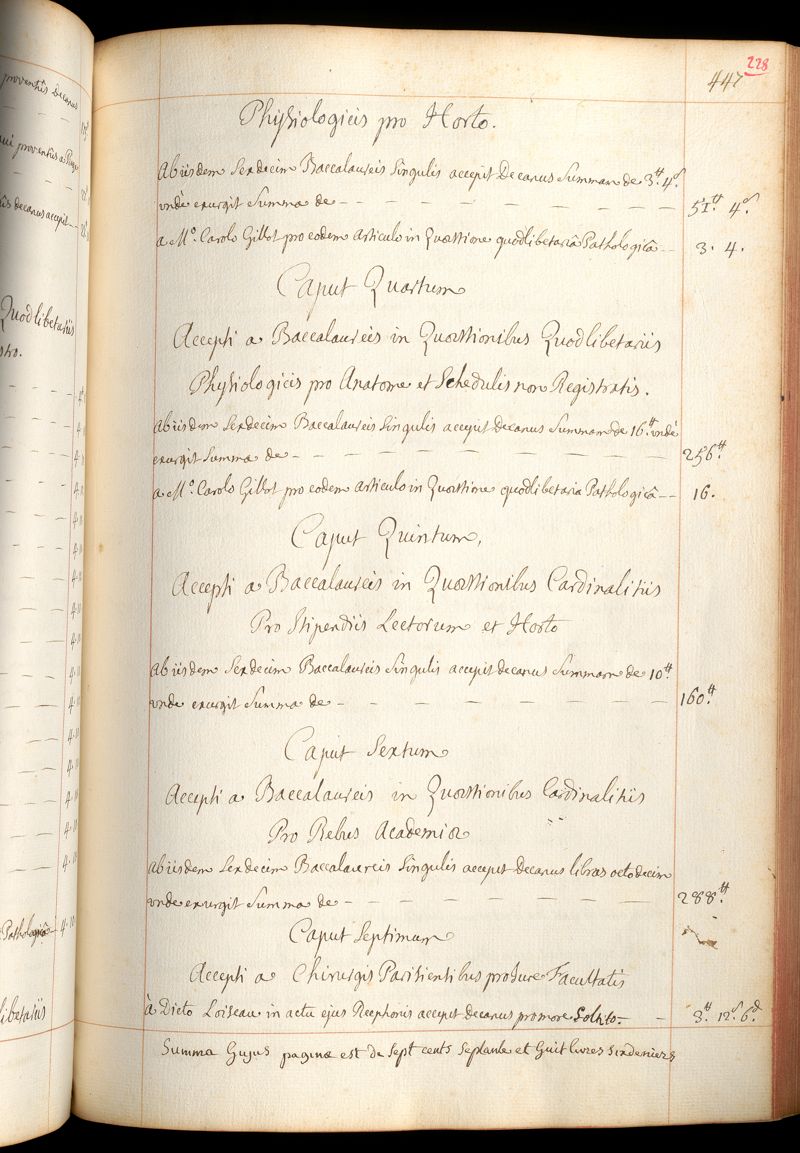 proventûs Decanus
ûs decanus accepit
Quodlibetariis
4.10
Pathologicâ 4.10
libetariis
228
447
Physiologicis pro Horto.
Ab iisdem Sexdecim Baccalaureis Singulis accepit Decanus Summam de 3.tt 4.s
unde exurgit Summa de — — — — — — — — 51tt 4.s
a M.o Carolo Gillot pro eodem Articulo in Quæstione quodlibetariâ Pathologicâ — — 3. 4.
Caput Quartum
Accepti a Baccalaureis in Quæstionibus Quodlibetariis
Physiologicis pro Anatome et Schedulis non Registratis.
Ab iisdem Sexdecim Baccalaureis Singulis accepit decanus Summam de 16.tt undè
exurgit Summa de — — — — — — — — — 256.tt
a M.o Carolo Gillot pro eodem articulo in Quæstione quodlibetaria Pathologicâ — — 16.
Caput Quintum,
Accepti a Baccalaureis in Quæstionibus Cardinalitiis
Pro Stipendiis Lectorum et Horto
Ab iisdem Sexdecim Baccalaureis Singulis accepit decanus Summam de 10.tt
unde exurgit Summa de — — — — — — — — 160.tt
Caput Sextum
Accepti a Baccalaureis in Quæstionibus Cardinalitiis
Pro Rebus Academiæ
Ab iisdem Sexdecim Baccalaureis Singulis accepit Decanus libras octodecim
unde exurgit Summa de — — — — — — — — 288.tt
Caput Septimum
Accepti a Chirurgis Parisientibus pro Jure Facultatis
à Dicto Loiseau in actu ejus Receptionis accepit decanus pro more Solito — — 3.tt 12.s 6.d
Summa hujus paginæ est de Sept cents Septante et huit livres six deniers